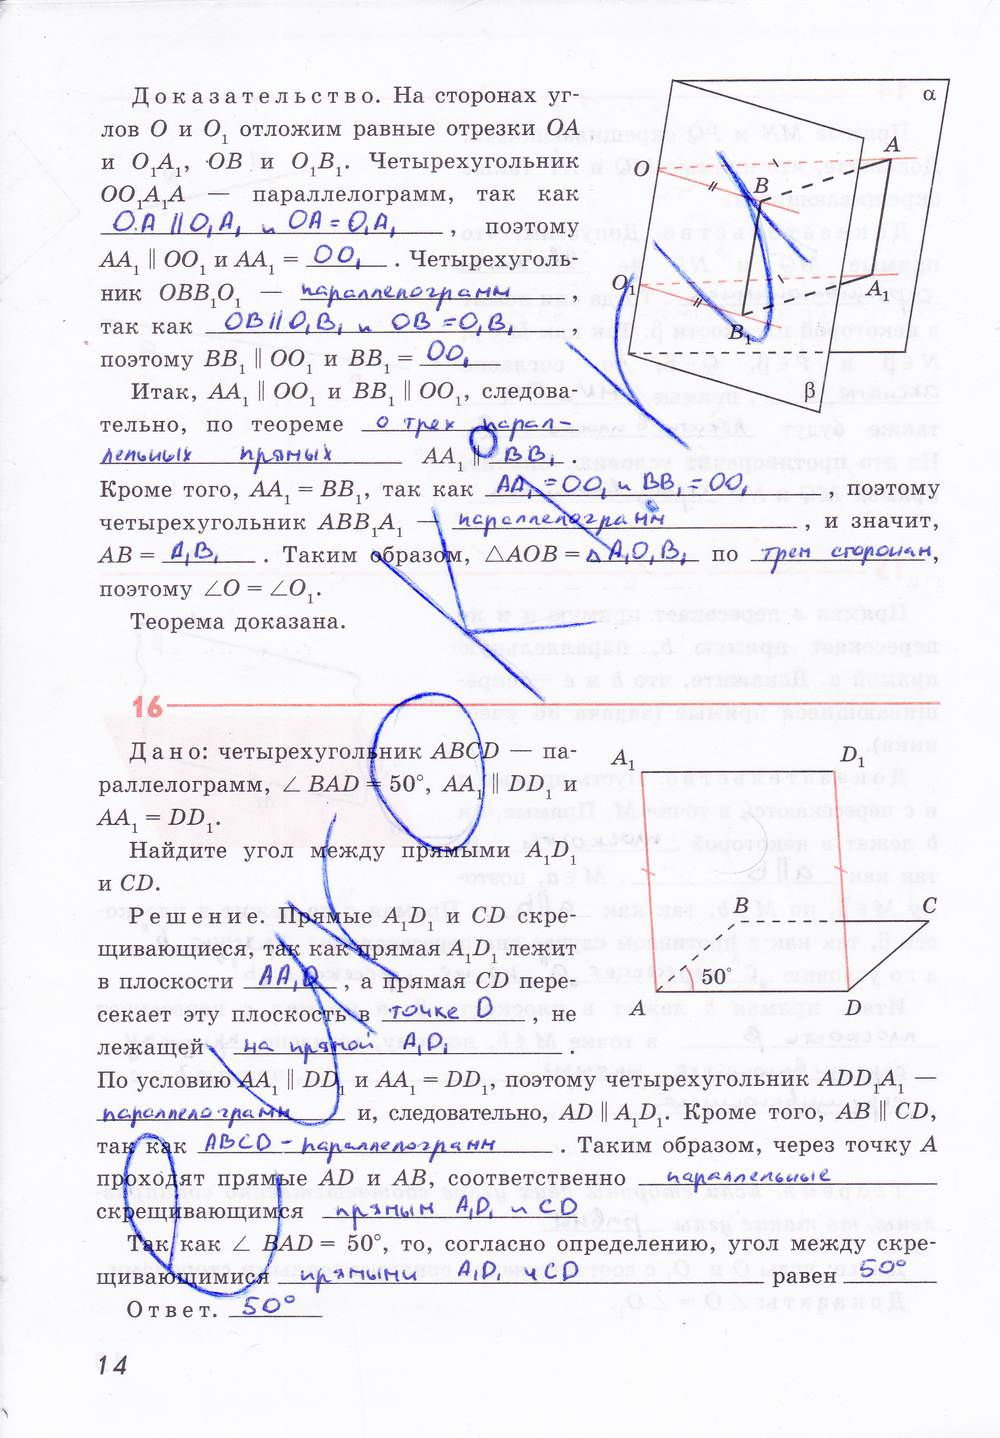 Доказательство. На сторонах уг-
лов O и O₁ отложим равные отрезки OA
и O₁A₁, OB и O₁B₁. Четырехугольник
OO₁A₁A — параллелограмм, так как
OA ∥ O₁A₁ и OA = O₁A₁, поэтому
AA₁ ∥ OO₁ и AA₁ = OO₁. Четырехуголь-
ник OBB₁O₁ — параллелограмм
так как OB ∥ O₁B₁ и OB = O₁B₁
поэтому BB₁ ∥ OO₁ и BB₁ = OO₁
Итак, AA₁ ∥ OO₁ и BB₁ ∥ OO₁, следова-
тельно, по теореме о трех парал-
лельных прямых AA₁ ∥ BB₁.
Кроме того, AA₁ = BB₁, так как AA₁ = OO₁ и BB₁ = OO₁, поэтому
четырехугольник ABB₁A₁ — параллелограмм, и значит,
AB = A₁B₁. Таким образом, △AOB = △A₁O₁B₁ по трем сторонам,
поэтому ∠O = ∠O₁.
Теорема доказана.
α
A
O
B
O₁
A₁
B₁
β
16
Дано: четырехугольник ABCD — па-
раллелограмм, ∠ BAD = 50°, AA₁ ∥ DD₁ и
AA₁ = DD₁.
Найдите угол между прямыми A₁D₁
и CD.
Решение. Прямые A₁D₁ и CD скре-
щивающиеся, так как прямая A₁D₁ лежит
в плоскости AA₁D, а прямая CD пере-
секает эту плоскость в точке D, не
лежащей на прямой A₁D₁.
A₁
D₁
B
C
50°
A
D
По условию AA₁ ∥ DD₁ и AA₁ = DD₁, поэтому четырехугольник ADD₁A₁ —
параллелограмм и, следовательно, AD ∥ A₁D₁. Кроме того, AB ∥ CD,
так как ABCD – параллелограмм. Таким образом, через точку A
проходят прямые AD и AB, соответственно параллельные
скрещивающимся прямым A₁D₁ и CD
Так как ∠ BAD = 50°, то, согласно определению, угол между скре-
щивающимися прямыми A₁D₁ и CD равен 50°
Ответ. 50°
14